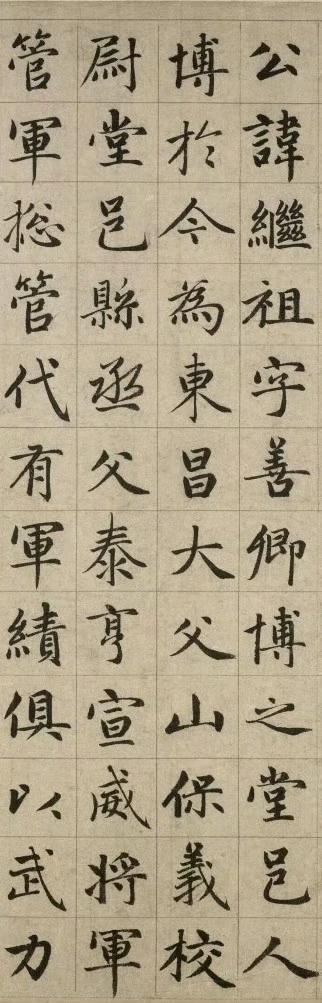 公諱繼祖字善卿博之堂邑人
博於今為東昌大父山保義校
尉堂邑縣丞父泰亨宣威將軍
管軍揔管代有軍績俱以武力